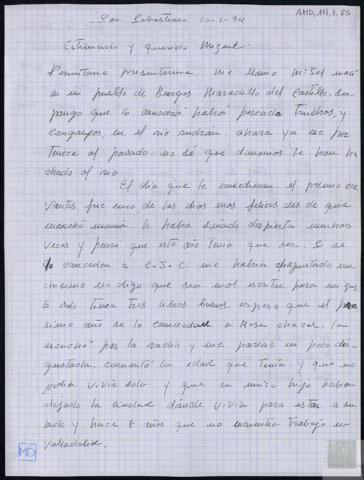 San Sebastian 10-1-94
AMD, 111, 1, 85
Estimado y querido Miguel:
Permitame presentarme me llamo Mª Sol nací
en un pueblo de Burgos Mazuelo del Castillo, su-
pongo que lo conocerá habrá pescado truchas, y
cangrejos, en el río Urbel ahora ya eso per-
tenece al pasado. no sé que demonios le han he
chado al río
El día que le concedieron el premio cer-
vantes fue uno de los dias mas felices desde que
murió mamá. lo había soñado despierta muchas
veces y pensé que este año tenia que ser. Si se
lo conceden a C.J.C. me habría disgustado mu-
chisimo no digo que sea mal escritor, pero
solo tiene tres libros buenos. espero que el pro
simo año se lo concedan a Rosa chacel. la
escuché por la radio y me pareció un poco dis-
gustada. comentó la edad que tenía y que no
podía vivir sola y que su unico hijo había
dejado la ciudad dónde vivía para estar a su
lado y hace 8 años que no encuentra trabajo en
Valladolid.
MD